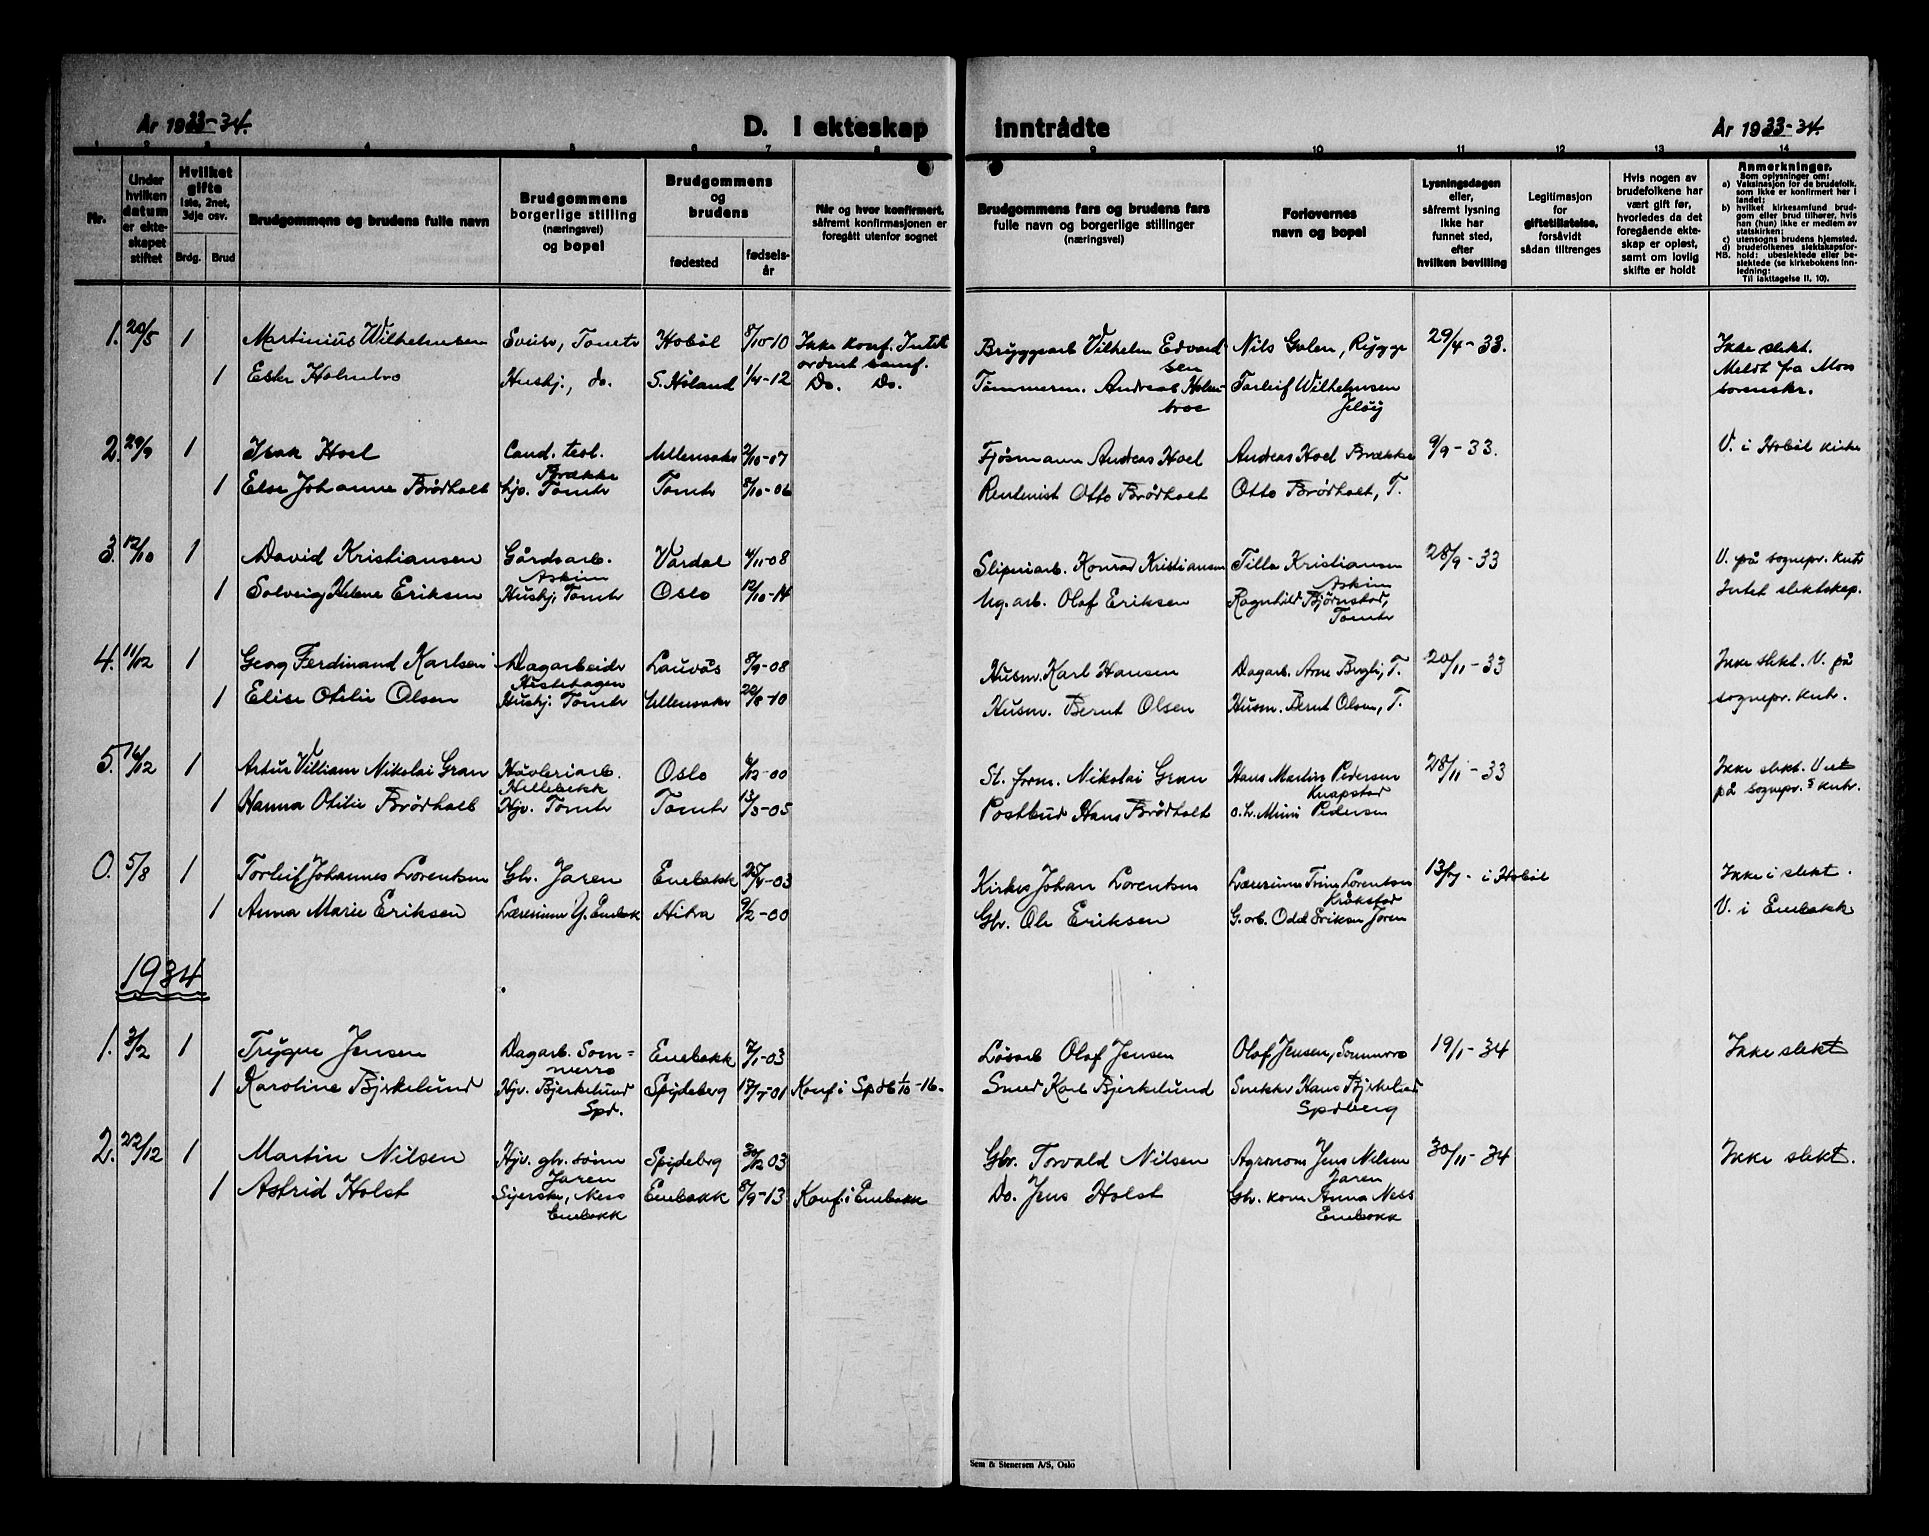 År 1933-34.
D. I ekteskap inntrådte
År 1933-34.
1 2 3 4 5 6 7 8 9 10 11 12 13 14
Nr.
Under hvilken datum er ekteskapet stiftet
Hvilket gifte 1ste, 2net, 3dje osv.
Brdg. Brud
Brudgommens og brudens fulle navn
Brudgommens borgerlige stilling (næringsvei) og bopel
Brudgommens og brudens
fødested
fødselsår
Når og hvor konfirmert, såfremt konfirmasjonen er foregått utenfor sognet
Brudgommens fars og brudens fars fulle navn og borgerlige stillinger (næringsvei)
Forlovernes navn og bopel
Lysningsdagen eller, såfremt lysning ikke har funnet sted, efter hvilken bevilling
Legitimasjon for giftetillatelse, forsåvidt sådan tiltrenges
Hvis nogen av brudefolkene har vært gift før, hvorledes da det foregående ekteskap er opløst, samt om lovlig skifte er holdt
Anmerkninger.
Som oplysninger om:
a) Vaksinasjon for de brudefolk, som ikke er konfirmert her i landet;
b) hvilket kirkesamfund brudgom eller brud tilhører, hvis han (hun) ikke er medlem av statskirken;
c) utensogns brudens hjemsted.
d) brudefolkenes slektskapsforhold: ubeslektede eller beslektede (se kirkebokens innledning:
NB. Til iakttagelse II. 10).
1. 20/5 1 Martinius Wilhelmsen Tomter Hobøl 8/10-10 Ikke konf. Bryggearb Vilhelm Edvardsen Nils Golen, Rygge 29/4-33. Ikke slekt.
1 Holmbro Hushj., do. S. Høland 1/4-12 Do. Do. Tømmerm. Andreas Holmbroe Torleif Wilhelmsen Jeløy Meldt fra Moss sorenskr.
2. 29/9 1 Isak Hoel Cand. teol. Brække Ullensaker 2/10-07 Fjøsmann Andreas Hoel Andreas Hoel Brække 9/9-33. V. i Hobøl kirke
1 Else Johanne Brødholt hjv. Tomtr Tomtr 8/10-06 Rentenist Otto Brødholt Otto Brødholt, T.
3. 12/10 1 David Kristiansen Gårdsarb. Askim Vardal 4/11-08 Sliperiarb. Konrad Kristiansen Tilla Kristiansen Askim 28/9-33 V. på sognepr. kntr
1 Solveig Helene Eriksen Hushj. Tomtr Oslo 12/10-14 Ug. arb. Olaf Eriksen Ragnhild Bjørnstad, Tomtr Intet slektskap.
4. 11/12 1 Georg Ferdinand Karlsen Dagarbeider 8/9-08 Husm. Karl Hansen Dagarb. Arne T. 20/11-33 Ikke slekt. V. på
1 Elise Otilie Olsen Hushj. Tomtr Ullensaker 22/8-10 Husm. Bernt Olsen Husm. Bernt Olsen, T. sognepr. kntr.
5. 16/12 1 Artur Villiam Nikolai Gran Høvleriarb. Hillebekk Oslo 6/12-00 St. form. Nikolai Gran Hans Martin Pedersen Knapstad 28/11-33 Ikke slekt.
1 Hanna Otilie Brødholt Hjv. Tomtr Tomtr 13/3-05 Postbud Hans Brødholt Pedersen på sognepr.s kntr.
0. 5/8 1 Torleif Johannes Lorentsen Gbr. Jaren Enebakk 25/4-03 Johan Lorentsen Lærerinne Trine Lorentsen Kråkstad 13/7- i Hobøl Ikke i slekt.
1 Anna Marie Eriksen Lærerinne Y. Enebak 9/2-00 Gbr. Ole Eriksen G. arb. Odd Eriksen Jaren V. i Enebakk
1934
1. 3/2 1 Trygve Jensen Dagarb. Sommerro Enebakk 7/1-03 Løsarb Olaf Jensen Olaf Jensen, Sommerro 19/1-34 Ikke slekt
1 Karoline Bjerkelund Hjv. Bjerkelund Spd. Spydeberg 17/7-01 Konf i Spdb 1/10-16. Smed Karl Bjerkelund Snekker Hans Bjerkelund Spdberg
2. 22/12 1 Martin Nilsen Hjv. gbr. sønn Jaren Spydebrg 30/12 03 Gbr. Torvald Nilsen Agronom Jens Nilsen Jaren 30/11-34 Ikke slekt.
1 Astrid Holst Syerske, Ness Enebakk Enebakk 8/9-13 Konf. i Enebakk Do. Jens Holst Gbr. kone Anna Ness Enebakk
Sem & Stenersen A/S, Oslo